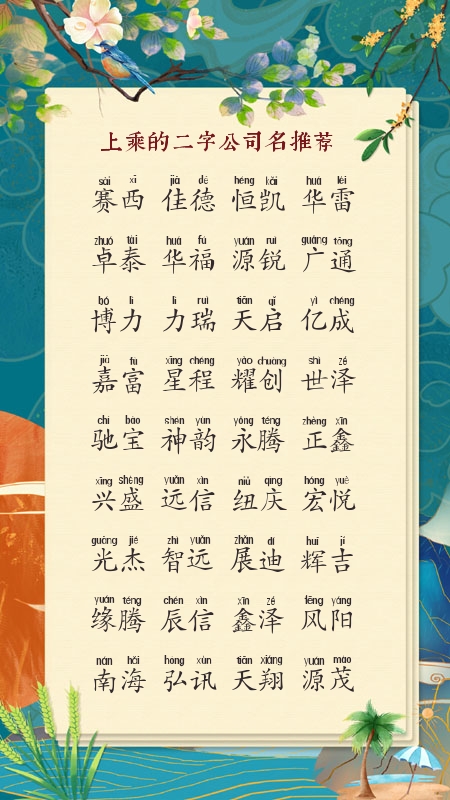 上乘的二字公司名推荐
sài xī jiā dé héng kǎi huá léi
赛西 佳德 恒凯 华雷
zhuó tài huá fú yuán ruì guǎng tōng
卓泰 华福 源锐 广通
bó lì lì ruì tiān qǐ yì chéng
博力 力瑞 天启 亿成
jiā fù xīng chéng yào chuàng shì zé
嘉富 星程 耀创 世泽
chí bǎo shén yùn yǒng téng zhèng xīn
驰宝 神韵 永腾 正鑫
xīng shèng yuǎn xìn niǔ qìng hóng yuè
兴盛 远信 纽庆 宏悦
guāng jié zhì yuǎn zhǎn dí huī jí
光杰 智远 展迪 辉吉
yuán téng chén xìn xīn zé fēng yáng
缘腾 辰信 鑫泽 风阳
nán hǎi hóng xùn tiān xiáng yuán mào
南海 弘讯 天翔 源茂